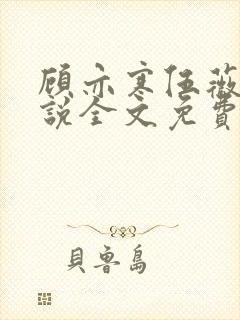 顾亦寒伍薇
說全文免費
貝魯島